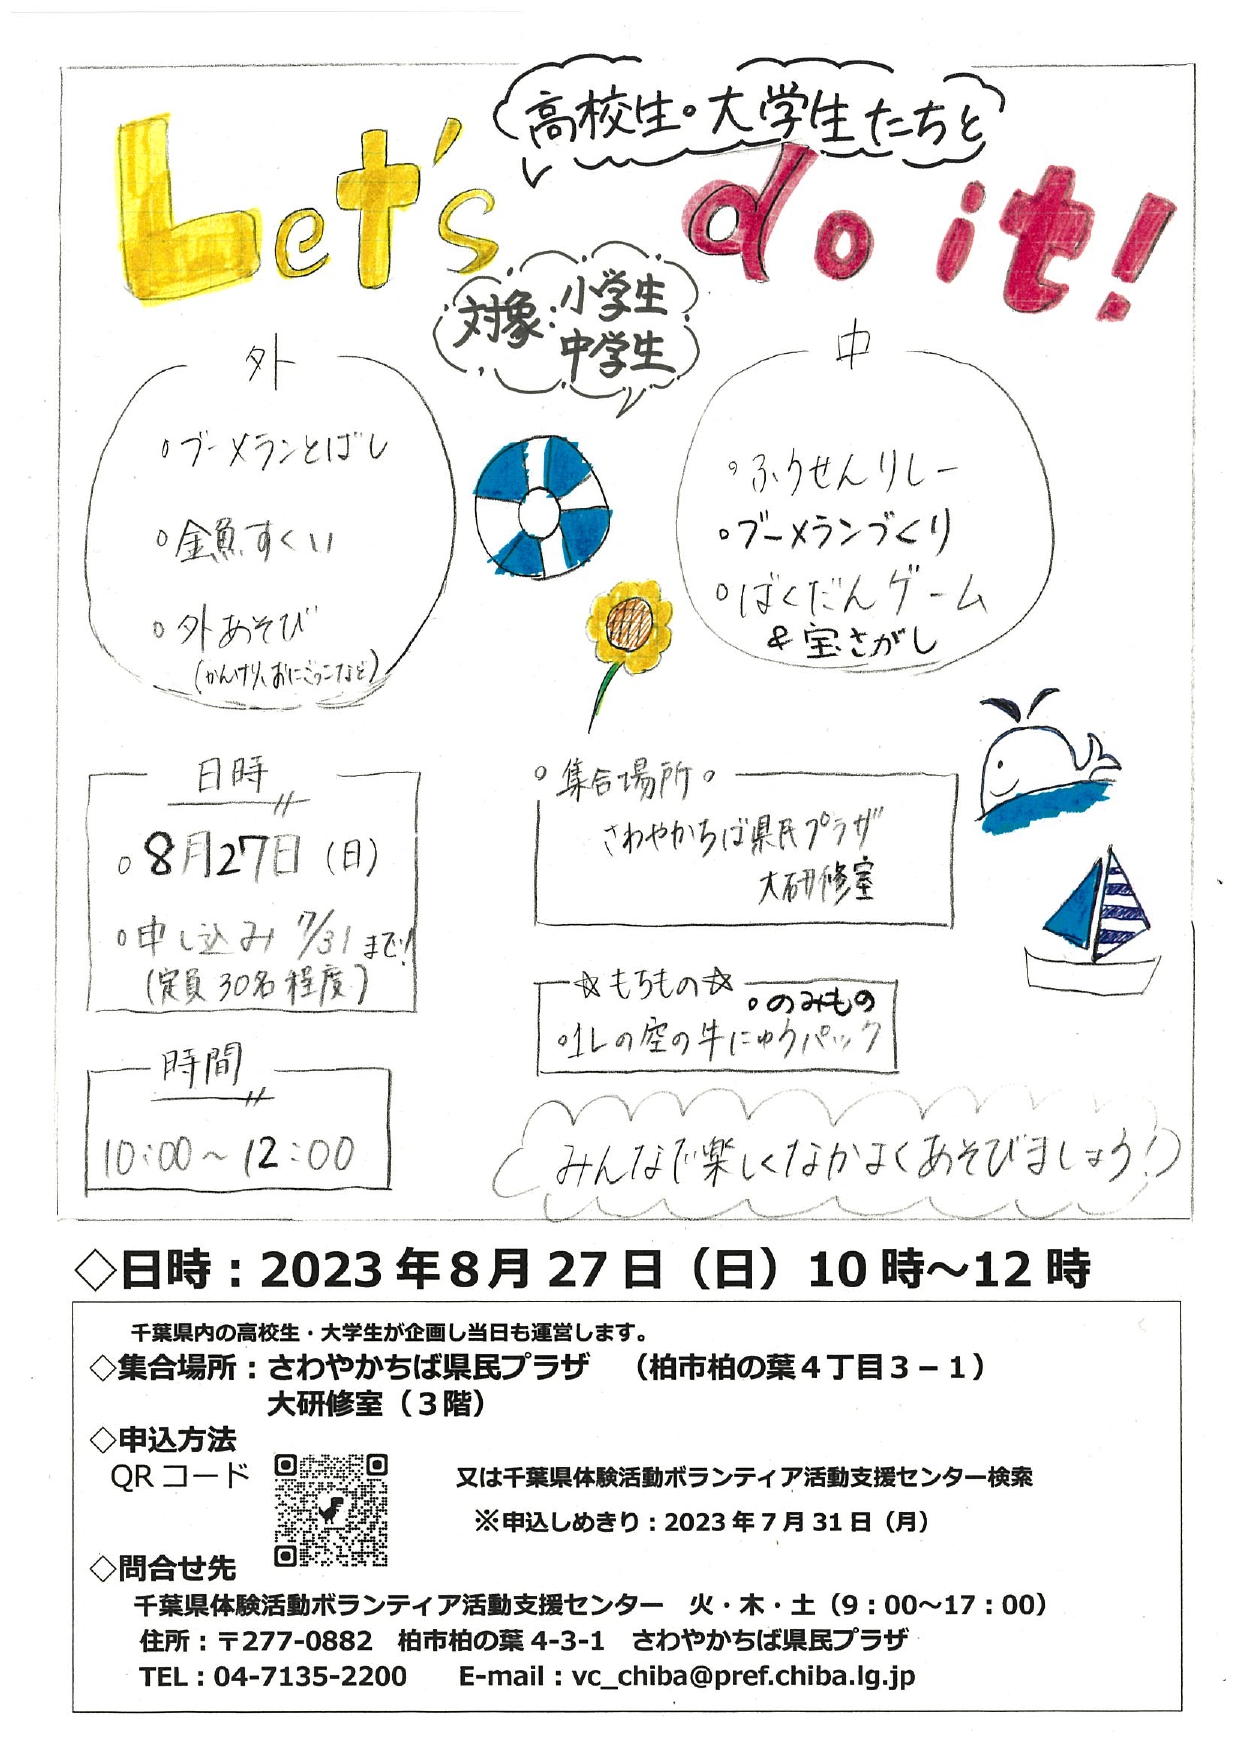 高校生・大学生たちと
Let's do it!
対象:小学生
中学生
外
・ブーメランとばし
・金魚すくい
・外あそび
(かんけり、おにごっこなど)
中
・ふうせんリレー
・ブーメランづくり
・ばくだんゲーム
&宝さがし
日時
・8月27日(日)
・申し込み 7/31まで!
(定員30名程度)
時間
10:00~12:00
・集合場所・
さわやかちば県民プラザ
大研修室
☆もちもの☆
・のみもの
・1Lの空の牛にゅうパック
みんなで楽しくなかよくあそびましょう!
◇日時：2023年8月27日（日）10時～12時
千葉県内の高校生・大学生が企画し当日も運営します。
◇集合場所：さわやかちば県民プラザ （柏市柏の葉４丁目３－１）
大研修室（３階）
◇申込方法
QRコード
又は千葉県体験活動ボランティア活動支援センター検索
※申込しめきり：2023年7月31日（月）
◇問合せ先
千葉県体験活動ボランティア活動支援センター 火・木・土（9：00～17：00）
住所：〒277-0882 柏市柏の葉4-3-1 さわやかちば県民プラザ
TEL：04-7135-2200 E-mail：vc_chiba@pref.chiba.lg.jp